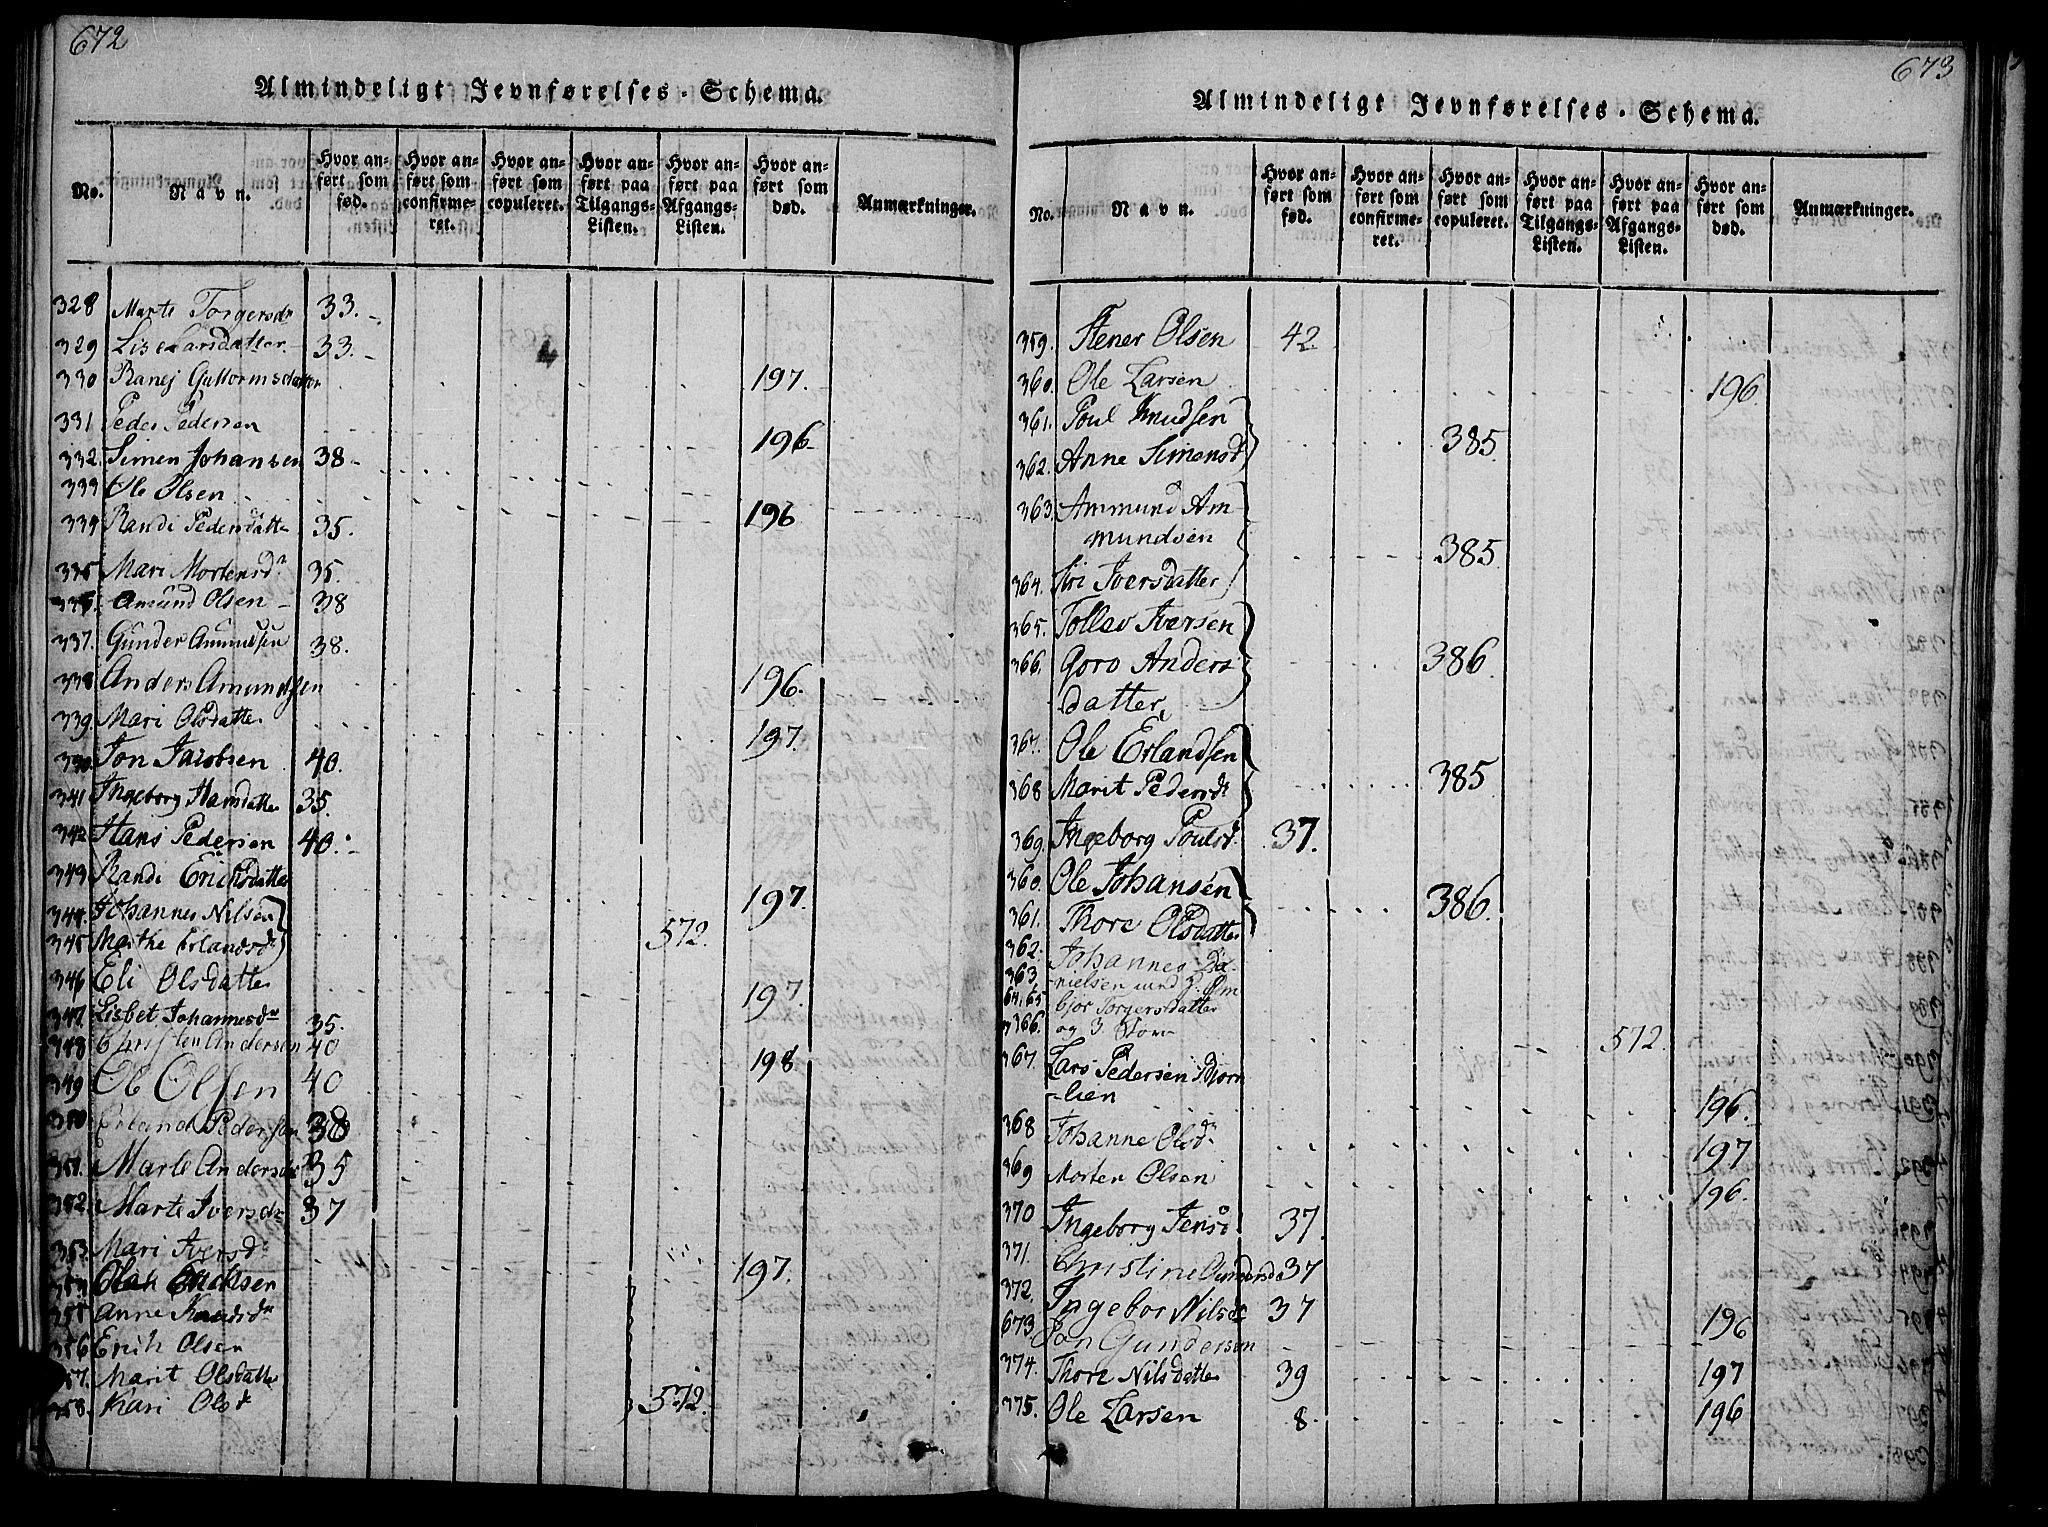 672
Almindeligt Jevnførelses-Schema.
No. Navn. Hvor anført som fød. Hvor anført som confirmeret. Hvor anført som copuleret. Hvor anført paa Tilgangs-Listen. Hvor anført paa Afgangs-Listen. Hvor anført som død. Anmærkninger.
328 Marte Torgersdr 33.
329 Lise Larsdatter 33.
330 Ranej Guttormsdatter 197.
331 Peder Pedersen 196
332. Simen Johansen 38
333 Ole Olsen 196
334 Randi Pedersdatte 35.
335 Mari Mortensdr 35.
336. Amund Olsen 38
337. Gunder Amundsen 38.
338 Anders Amundsen 196.
339. Mari Olsdatte 197
340 Jon Jacobsen 40.
341 Ingeborg Hansdatte 35.
342 Hans Pedersen 40.
343 Randi Ericksdatte 197.
344. Johannes Nilsen
345 Marthe Erlandsdr 572.
346 Eli Olsdatte 197.
347. Lisbet Johannesdr 35.
348 Christen Andersen 40 198
349 Ole Olsen 40
350 Erland Pedersen 38
351. Marte Andersdr 35
352. Marte Iversdr 37
353. Mari Iversdr 197.
354 Ericksen
355 Anne Knudsdr
356 Erich Olsen
357. Marit Olsdatte 572.
358. Kari Olsdr
673
Almindeligt Jevnførelses-Schema.
No. Navn. Hvor anført som fød. Hvor anført som confirmeret. Hvor anført som copuleret. Hvor anført paa Tilgangs-Listen. Hvor anført paa Afgangs-Listen. Hvor anført som død. Anmærkninger.
359. Stener Olsen 42.
360. Ole Larsen 196.
361. Poul Knudsen
362. Anne Simensd 385.
363. Ammund Am-
mundsen 385.
364. Siri Iversdatter
365. Tollev Iversen
366. Goro Anders 386.
datter
367. Ole Erlandsen
368 Marit Pedersdr 385
369. Ingeborg Poulsd. 37.
360. Ole Johansen 386.
361. Thore Olsdatte
362. Johannes Da-
363 nielsen
64, 65 bjør Torgersdatte
366. og 3. 572.
367. Lars Pedersen Biørn
lien 196.
368 Johanne Olsdr 197
369 Morten Olsen 196.
370 Ingeborg Jensd 37.
371. Christine 37
372. Ingebor Nilsdr 37
673 Jon Gundersen 196
374. Thore Nilsdatte 39 197
375. Ole Larsen 8. 196